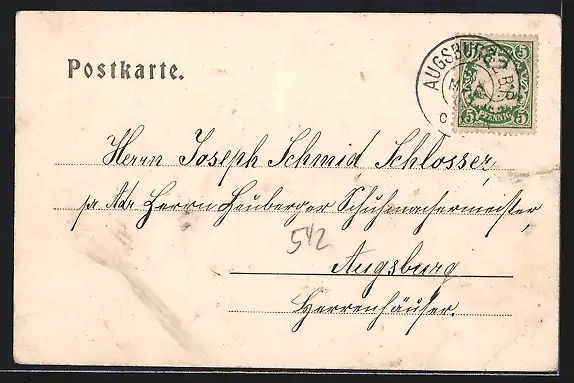 Postkarte.
AUGSBURG
5 5
5 5
PFENNIG
Herrn Joseph Schmid Schlosser,
pr. Adr. Herrn Heuberger Schuhmachermeister,
542
Augsburg
Herrenhäuser.